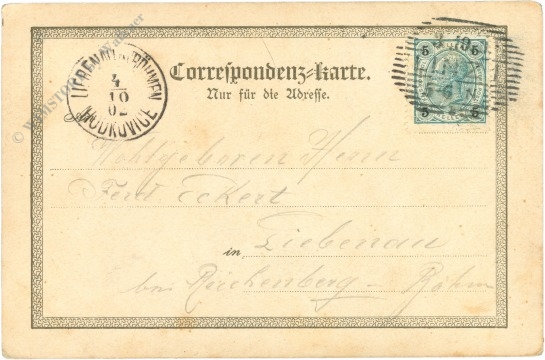 Correspondenz-Karte.
Nur für die Adresse.
LIEBENAU in BÖHMEN
4
10
02
HODKOVICE
5 5
5 5
Wohlgeboren Herrn
Ferd. Eckert
in Liebenau
bei Reichenberg – Böhm